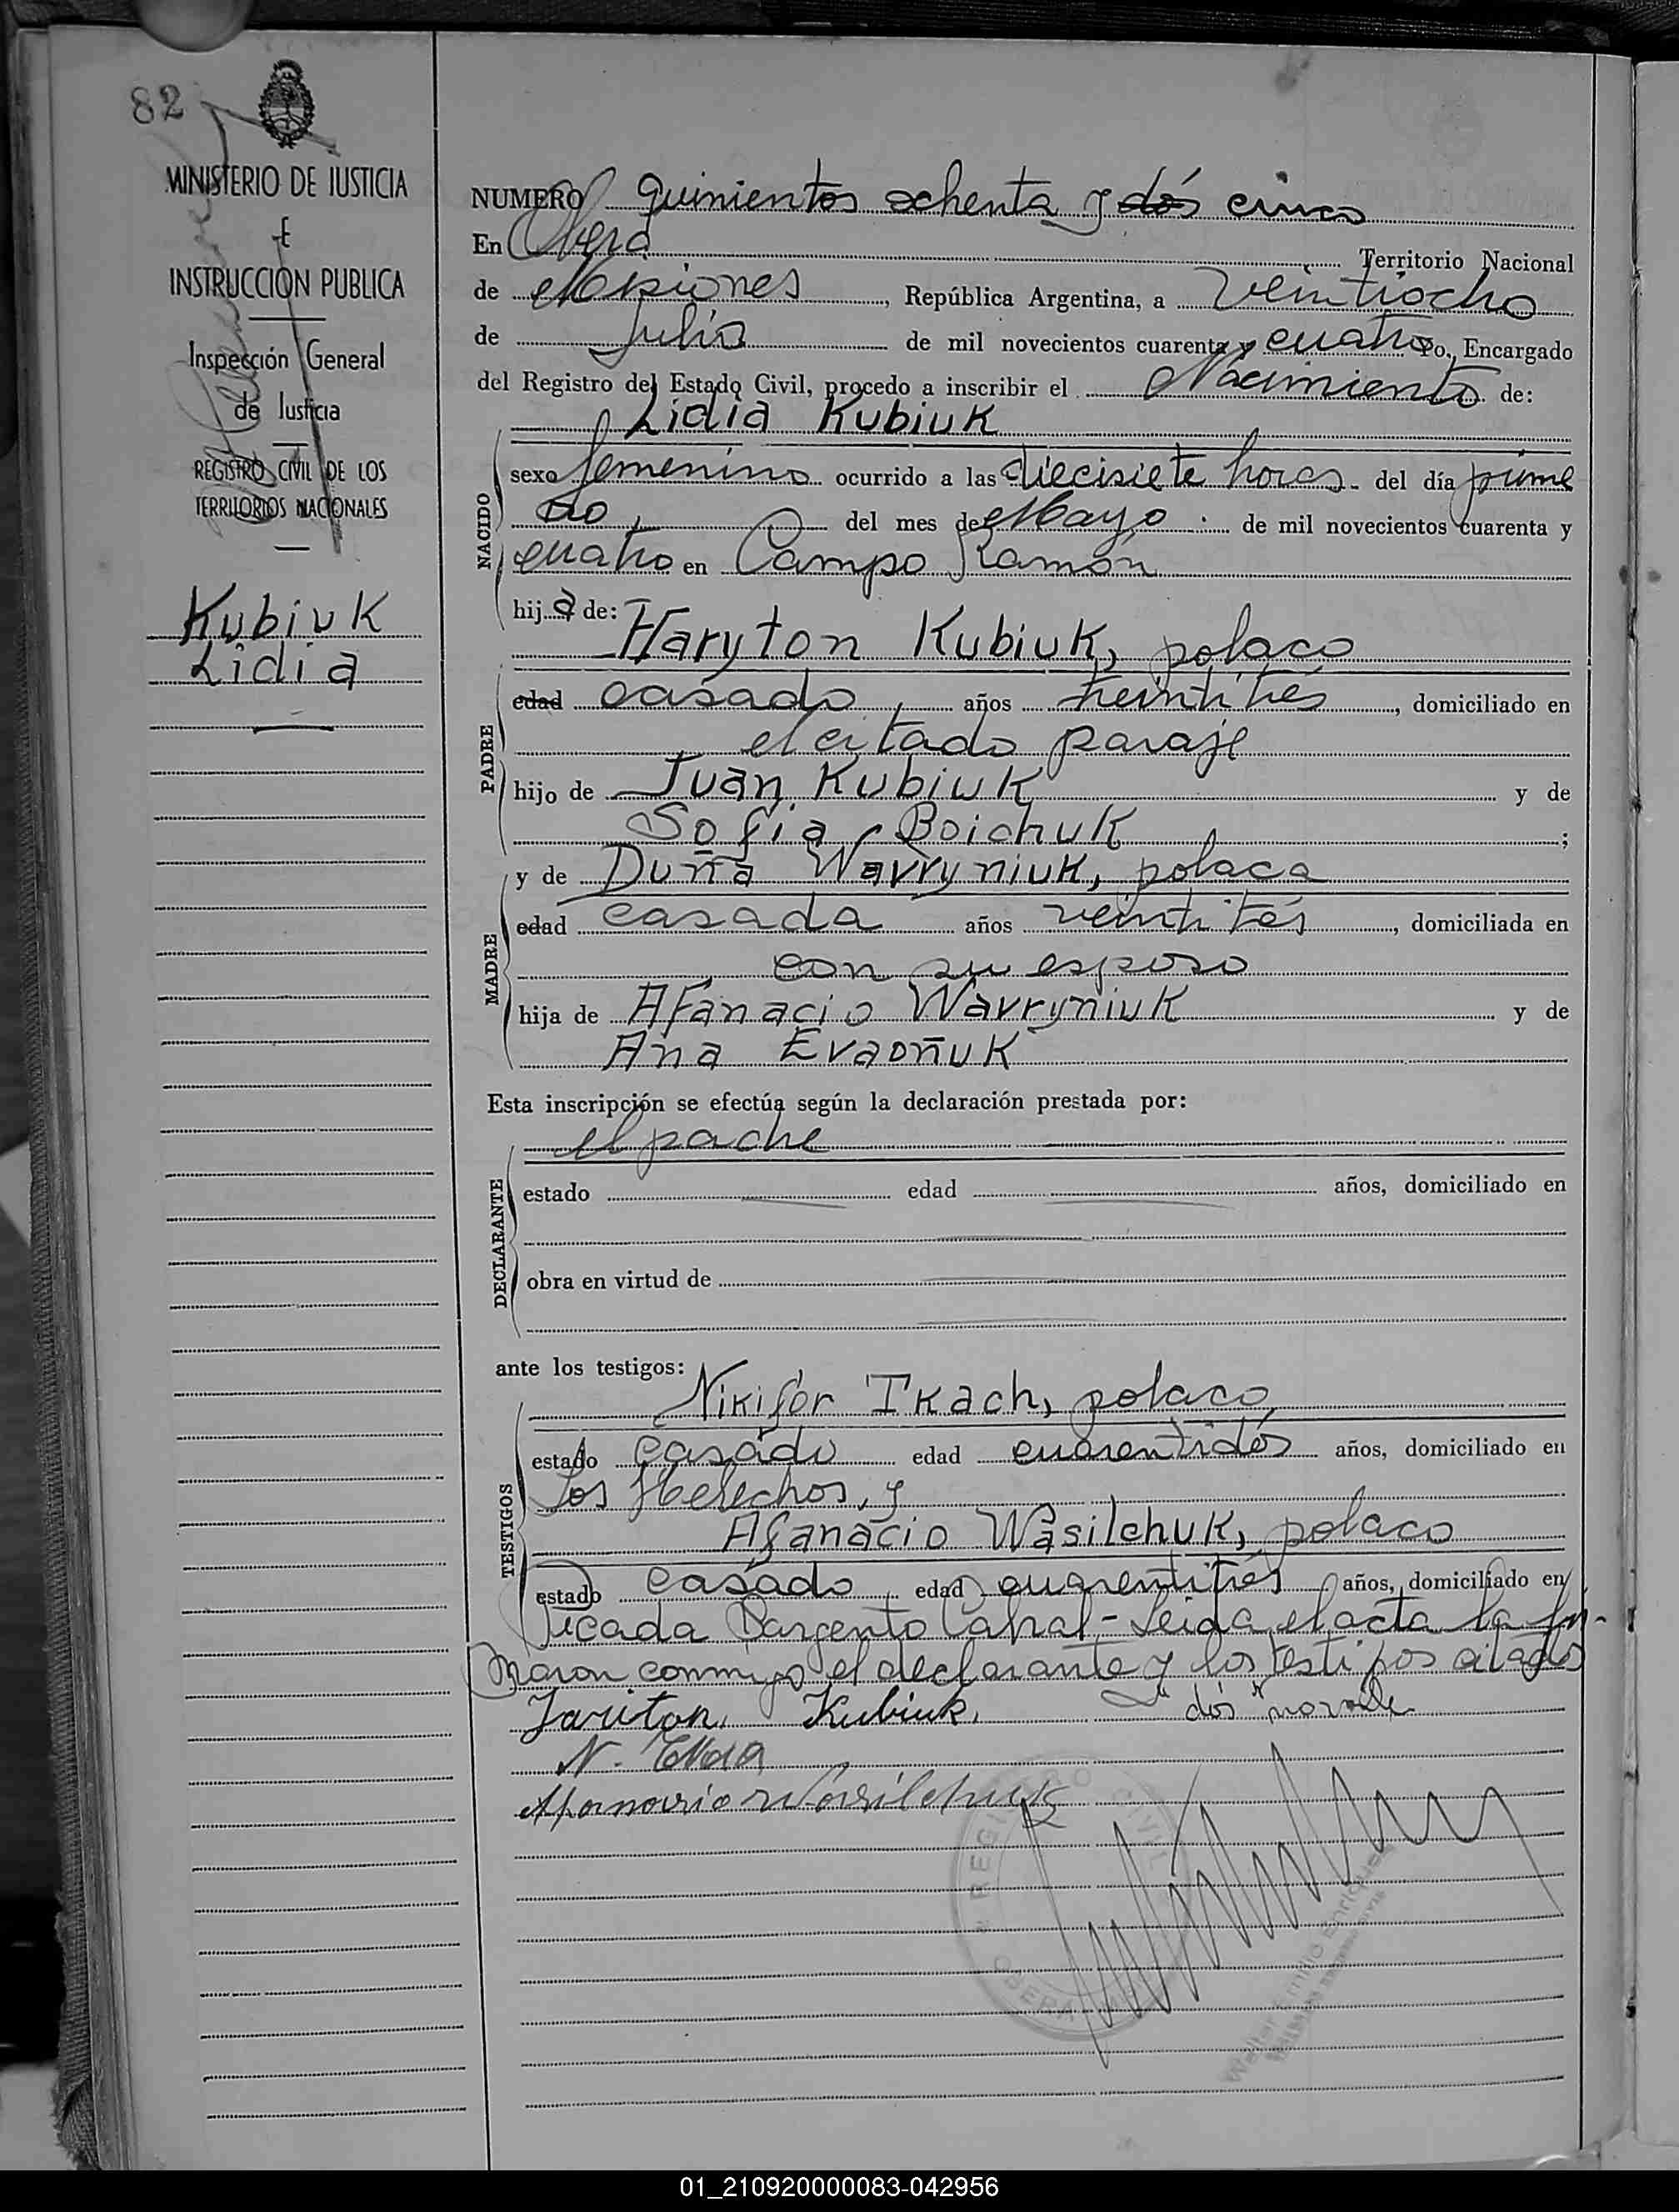 82
MINISTERIO DE JUSTICIA
E
INSTRUCCIÓN PUBLICA
Inspección General
de Justicia
REGISTRO CIVIL DE LOS
TERRITORIOS NACIONALES
Kubiuk
Lidia
NUMERO quinientos ochenta y dós cinco
En Oberá Territorio Nacional
de Misiones, República Argentina, a veintiocho
de Julio de mil novecientos cuarenta y cuatro Yo, Encargado
del Registro del Estado Civil, procedo a inscribir el Nacimiento de:
Lidia Kubiuk
NACIDO
sexo femenino ocurrido a las diecisiete horas del día prime
ro, del mes de Mayo de mil novecientos cuarenta y
cuatro en Campo Ramón
hija de:
Haryton Kubiuk, polaco
PADRE
edad casado, años treintitrés, domiciliado en
el citado paraje
hijo de Juan Kubiuk y de
Sofia Boichuk;
y de Duña Wavryniuk, polaca
MADRE
edad casada años veintitrés, domiciliada en
con su esposo
hija de Afanacio Wavryniuk y de
Ana Evaoñuk
Esta inscripción se efectúa según la declaración prestada por:
el padre
DECLARANTE
estado edad años, domiciliado en
obra en virtud de
ante los testigos:
Nikifor Tkach, polaco,
TESTIGOS
estado casado edad cuarentidós años, domiciliado en
Los Helechos, y
Afanacio Wasilchuk, polaco
estado casado edad cuarentitrés años, domiciliado en
Picada Sargento Cabral - Leida el acta la fir-
maron conmigo el declarante y los testigos citados
Jariton Kubiuk. "dós" no vale
N.
Afanasio Wasilchuk
REGISTRO CIVIL
OBERA